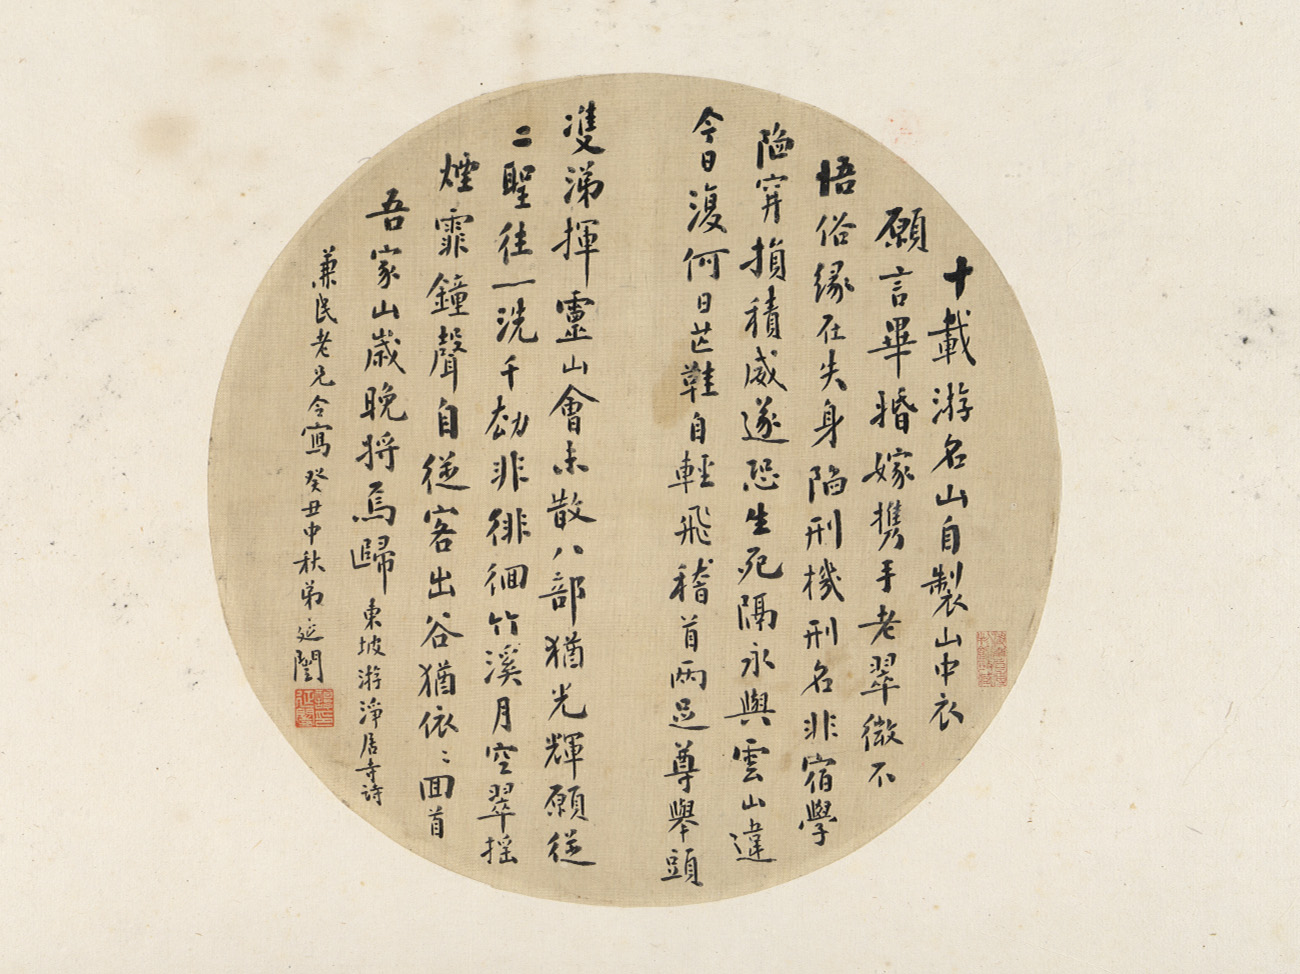 十載游名山自製山中衣
願言畢婚嫁携手老翠微不
悟俗緣在失身陷刑機刑名非宿學
陷穽損積威遂恐生死隔永與雲山違
今日復何日芒鞋自輕飛稽首兩足尊舉頭
雙涕揮靈山會未散八部猶光輝願從
二聖往一洗千劫非徘徊竹溪月空翠摇
煙霏鐘聲自送客出谷猶依〻回首
吾家山歲晚將焉歸 東坡游淨居寺詩
兼民老兄令寫 癸丑中秋弟延闓